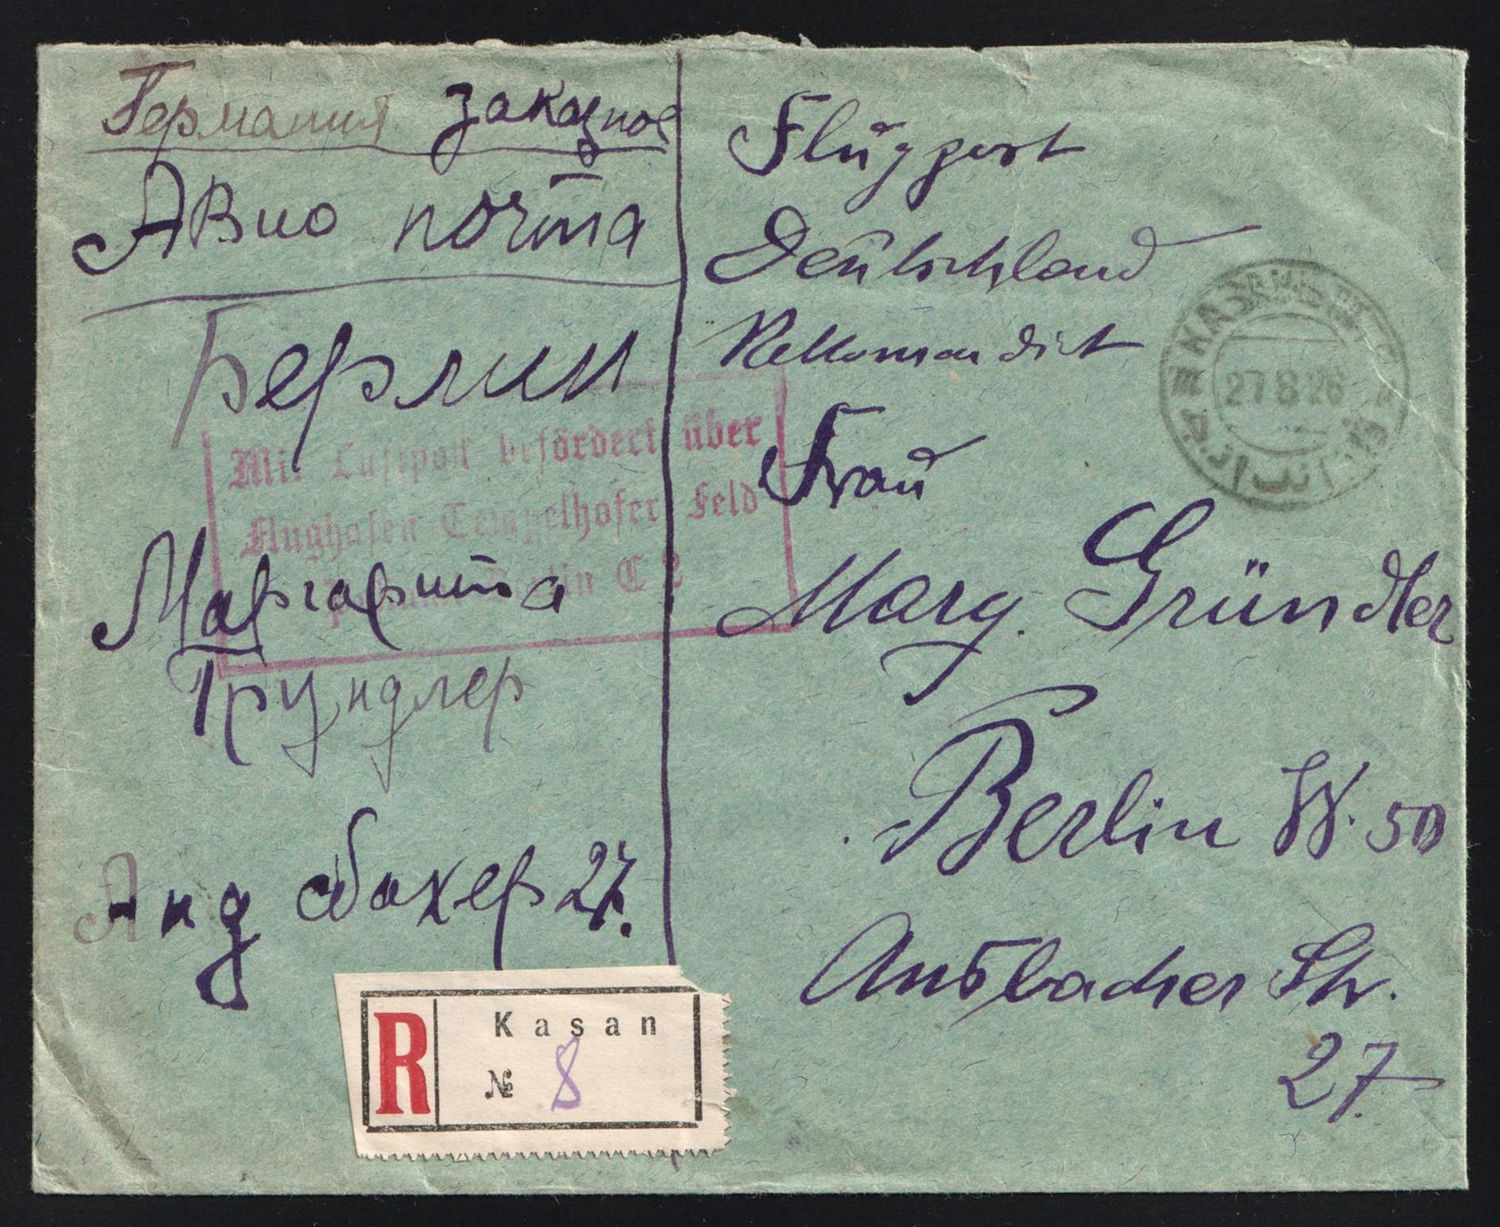 Германия заказное
Авио почта
Берлин
Маргарита
Грундлер
Анд бахер 27.
Flugpost
Deutschland
Rekomandirt
Frau
Marg. Gründler
Berlin W. 50
Ansbacher Str.
27.
27 8 26
Mit Luftpost befördert über
Flughafen Tempelhofer Feld
Berlin C 2
R
Kasan
№ 8